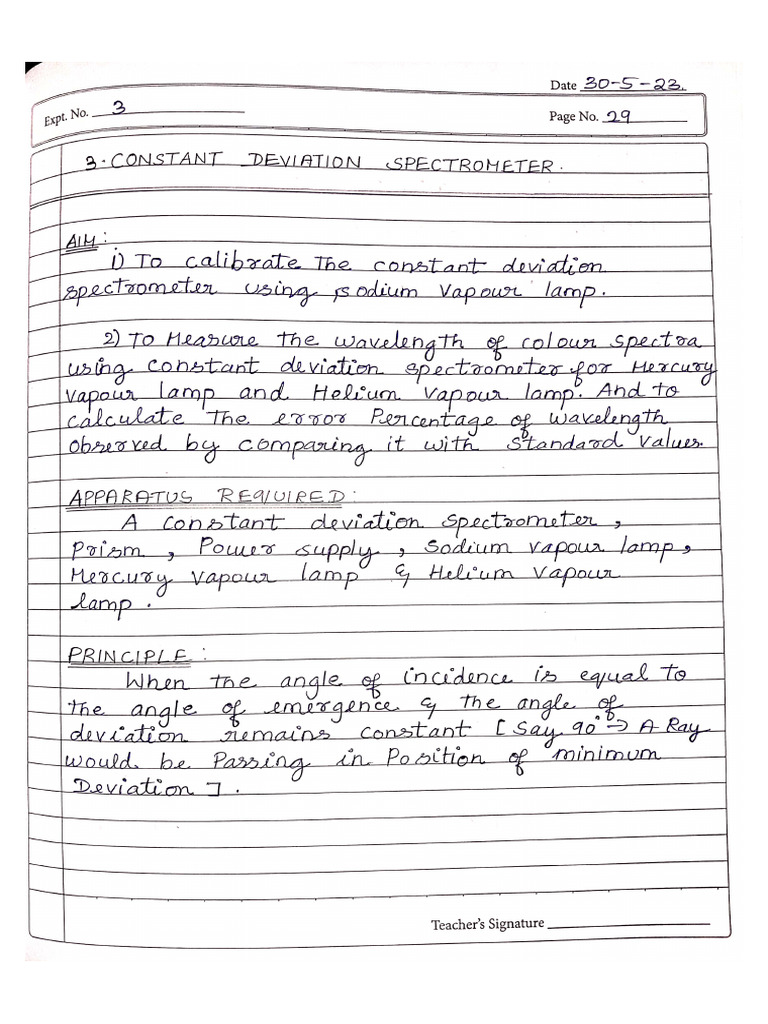 Date 30-5-23.
Expt. No. 3
Page No. 29
3. CONSTANT DEVIATION SPECTROMETER.
AIM:
i) To calibrate the constant deviation
spectrometer using sodium vapour lamp.
2) To Measure the wavelength of colour spectra
using constant deviation spectrometer for Mercury
vapour lamp and Helium vapour lamp. And to
calculate the error Percentage of wavelength
observed by comparing it with standard values.
APPARATUS REQUIRED:
A constant deviation spectrometer,
Prism, Power supply, sodium vapour lamp,
Mercury vapour lamp & Helium vapour
lamp.
PRINCIPLE:
When the angle of incidence is equal to
the angle of emergence & the angle of
deviation remains constant [Say 90° ⇒ A Ray
would be Passing in Position of minimum
Deviation].
Teacher's Signature